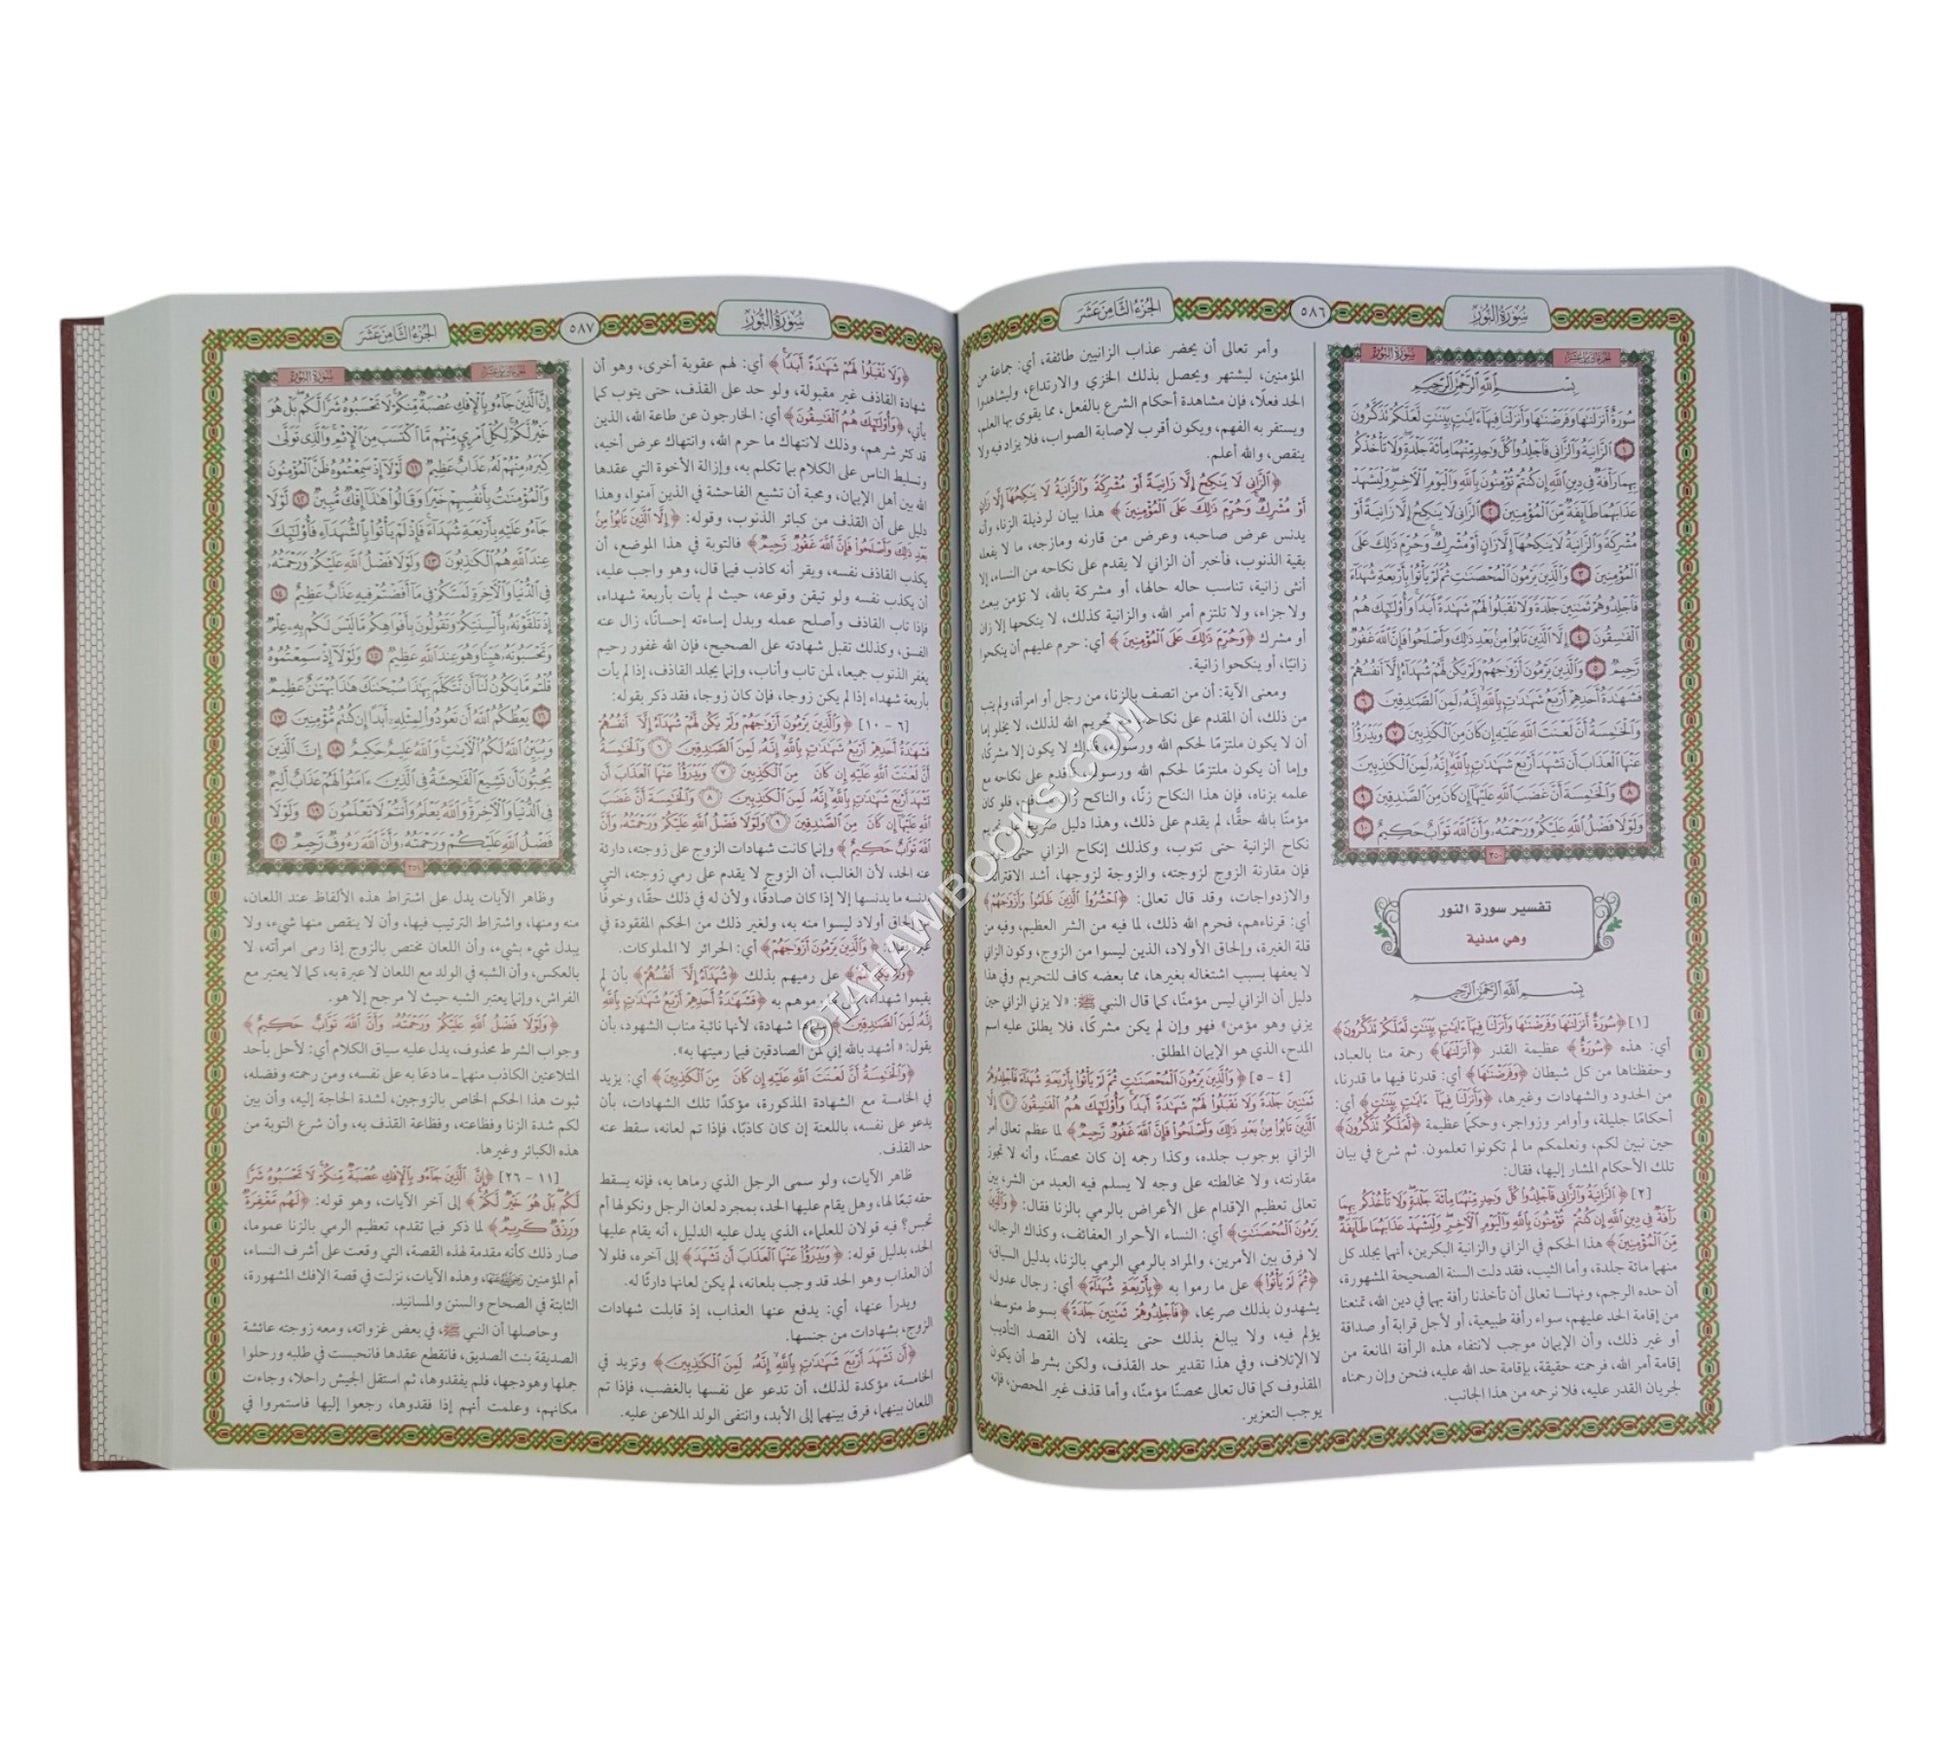 سُورَةُ النُّورِ
٥٨٦
الجُزْءُ الثَّامِنَ عَشَرَ
سُورَةُ النُّورِ
الجزء الثامن عشر
بِسْمِ اللَّهِ الرَّحْمَٰنِ الرَّحِيمِ
سُورَةٌ أَنزَلْنَٰهَا وَفَرَضْنَٰهَا وَأَنزَلْنَا فِيهَآ ءَايَٰتٍۭ بَيِّنَٰتٍ لَّعَلَّكُمْ تَذَكَّرُونَ
١ ٱلزَّانِيَةُ وَٱلزَّانِي فَٱجْلِدُوا۟ كُلَّ وَٰحِدٍ مِّنْهُمَا مِا۟ئَةَ جَلْدَةٍ وَلَا تَأْخُذْكُم
بِهِمَا رَأْفَةٌ فِي دِينِ ٱللَّهِ إِن كُنتُمْ تُؤْمِنُونَ بِٱللَّهِ وَٱلْيَوْمِ ٱلْءَاخِرِ وَلْيَشْهَدْ
عَذَابَهُمَا طَآئِفَةٌ مِّنَ ٱلْمُؤْمِنِينَ ٢ ٱلزَّانِي لَا يَنكِحُ إِلَّا زَانِيَةً أَوْ
مُشْرِكَةً وَٱلزَّانِيَةُ لَا يَنكِحُهَآ إِلَّا زَانٍ أَوْ مُشْرِكٌ وَحُرِّمَ ذَٰلِكَ عَلَى
ٱلْمُؤْمِنِينَ ٣ وَٱلَّذِينَ يَرْمُونَ ٱلْمُحْصَنَٰتِ ثُمَّ لَمْ يَأْتُوا۟ بِأَرْبَعَةِ شُهَدَآءَ
فَٱجْلِدُوهُمْ ثَمَٰنِينَ جَلْدَةً وَلَا تَقْبَلُوا۟ لَهُمْ شَهَٰدَةً أَبَدًا وَأُو۟لَٰٓئِكَ هُمُ
ٱلْفَٰسِقُونَ ٤ إِلَّا ٱلَّذِينَ تَابُوا۟ مِنۢ بَعْدِ ذَٰلِكَ وَأَصْلَحُوا۟ فَإِنَّ ٱللَّهَ غَفُورٌ
رَّحِيمٌ ٥ وَٱلَّذِينَ يَرْمُونَ أَزْوَٰجَهُمْ وَلَمْ يَكُن لَّهُمْ شُهَدَآءُ إِلَّآ أَنفُسُهُمْ
فَشَهَٰدَةُ أَحَدِهِمْ أَرْبَعُ شَهَٰدَٰتٍۭ بِٱللَّهِ إِنَّهُۥ لَمِنَ ٱلصَّٰدِقِينَ ٦
وَٱلْخَٰمِسَةُ أَنَّ لَعْنَتَ ٱللَّهِ عَلَيْهِ إِن كَانَ مِنَ ٱلْكَٰذِبِينَ ٧ وَيَدْرَؤُا۟
عَنْهَا ٱلْعَذَابَ أَن تَشْهَدَ أَرْبَعَ شَهَٰدَٰتٍۭ بِٱللَّهِ إِنَّهُۥ لَمِنَ ٱلْكَٰذِبِينَ
٨ وَٱلْخَٰمِسَةَ أَنَّ غَضَبَ ٱللَّهِ عَلَيْهَآ إِن كَانَ مِنَ ٱلصَّٰدِقِينَ ٩
وَلَوْلَا فَضْلُ ٱللَّهِ عَلَيْكُمْ وَرَحْمَتُهُۥ وَأَنَّ ٱللَّهَ تَوَّابٌ حَكِيمٌ ١٠
٣٥٠
تفسير سورة النور
وهي مدنية
بِسْمِ اللَّهِ الرَّحْمَٰنِ الرَّحِيمِ
[١] ﴿سُورَةٌ أَنزَلْنَٰهَا وَفَرَضْنَٰهَا وَأَنزَلْنَا فِيهَآ ءَايَٰتٍۭ بَيِّنَٰتٍ لَّعَلَّكُمْ تَذَكَّرُونَ﴾
أي: هذه ﴿سُورَةٌ﴾ عظيمة القدر ﴿أَنزَلْنَٰهَا﴾ رحمة منا بالعباد،
وحفظناها من كل شيطان ﴿وَفَرَضْنَٰهَا﴾ أي: قدرنا فيها ما قدرنا،
من الحدود والشهادات وغيرها، ﴿وَأَنزَلْنَا فِيهَآ ءَايَٰتٍۭ بَيِّنَٰتٍ﴾ أي:
أحكامًا جليلة، وأوامر وزواجر، وحكمًا عظيمة ﴿لَّعَلَّكُمْ تَذَكَّرُونَ﴾
حين نبين لكم، ونعلمكم ما لم تكونوا تعلمون. ثم شرع في بيان
تلك الأحكام المشار إليها، فقال:
[٢] ﴿ٱلزَّانِيَةُ وَٱلزَّانِي فَٱجْلِدُوا۟ كُلَّ وَٰحِدٍ مِّنْهُمَا مِا۟ئَةَ جَلْدَةٍ وَلَا تَأْخُذْكُم بِهِمَا
رَأْفَةٌ فِي دِينِ ٱللَّهِ إِن كُنتُمْ تُؤْمِنُونَ بِٱللَّهِ وَٱلْيَوْمِ ٱلْءَاخِرِ وَلْيَشْهَدْ عَذَابَهُمَا طَآئِفَةٌ
مِّنَ ٱلْمُؤْمِنِينَ﴾ هذا الحكم في الزاني والزانية البكرين، أنهما يجلد كل
منهما مائة جلدة، وأما الثيب، فقد دلت السنة الصحيحة المشهورة،
أن حده الرجم، ونهانا تعالى أن تأخذنا رأفة بهما في دين الله، تمنعنا
من إقامة الحد عليهم، سواء رأفة طبيعية، أو لأجل قرابة أو صداقة
أو غير ذلك، وأن الإيمان موجب لانتفاء هذه الرأفة المانعة من
إقامة أمر الله، فرحمته حقيقة، بإقامة حد الله عليه، فنحن وإن رحمناه
لجريان القدر عليه، فلا نرحمه من هذا الجانب.
وأمر تعالى أن يحضر عذاب الزانيين طائفة، أي: جماعة من
المؤمنين، ليشتهر ويحصل بذلك الخزي والارتداع، وليشاهدوا
الحد فعلًا، فإن مشاهدة أحكام الشرع بالفعل، مما يقوى بها العلم،
ويستقر به الفهم، ويكون أقرب لإصابة الصواب، فلا يزاد فيه ولا
ينقص، والله أعلم.
﴿ٱلزَّانِي لَا يَنكِحُ إِلَّا زَانِيَةً أَوْ مُشْرِكَةً وَٱلزَّانِيَةُ لَا يَنكِحُهَآ إِلَّا زَانٍ
أَوْ مُشْرِكٌ وَحُرِّمَ ذَٰلِكَ عَلَى ٱلْمُؤْمِنِينَ﴾ هذا بيان لرذيلة الزنا، وأنه
يدنس عرض صاحبه، وعرض من قارنه ومازجه، ما لا يفعله
بقية الذنوب، فأخبر أن الزاني لا يقدم على نكاحه من النساء، إلا
أنثى زانية، تناسب حاله حالها، أو مشركة بالله، لا تؤمن ببعث
ولا جزاء، ولا تلتزم أمر الله، والزانية كذلك، لا ينكحها إلا زان
أو مشرك ﴿وَحُرِّمَ ذَٰلِكَ عَلَى ٱلْمُؤْمِنِينَ﴾ أي: حرم عليهم أن ينكحوا
زانيًا، أو ينكحوا زانية.
ومعنى الآية: أن من اتصف بالزنا، من رجل أو امرأة، ولم يتب
من ذلك، أن المقدم على نكاحه مع تحريم الله لذلك، لا يخلو إما
أن لا يكون ملتزمًا لحكم الله ورسوله، فذلك لا يكون إلا مشركًا،
وإما أن يكون ملتزمًا لحكم الله ورسوله، فأقدم على نكاحه مع
علمه بزناه، فإن هذا النكاح زنًا، والناكح زانٍ مسافح، فلو كان
مؤمنًا بالله حقًّا، لم يقدم على ذلك، وهذا دليل صريح على تحريم
نكاح الزانية حتى تتوب، وكذلك إنكاح الزاني حتى يتوب،
فإن مقارنة الزوج لزوجته، والزوجة لزوجها، أشد الاقترانات
والازدواجات، وقد قال تعالى: ﴿ٱحْشُرُوا۟ ٱلَّذِينَ ظَلَمُوا۟ وَأَزْوَٰجَهُمْ﴾
أي: قرناءهم، فحرم الله ذلك، لما فيه من الشر العظيم، وفيه من
قلة الغيرة، وإلحاق الأولاد، الذين ليسوا من الزوج، وكون الزاني
لا يعفها بسبب اشتغاله بغيرها، مما بعضه كاف للتحريم وفي هذا
دليل أن الزاني ليس مؤمنًا، كما قال النبي ﷺ: «لا يزني الزاني حين
يزني وهو مؤمن» فهو وإن لم يكن مشركًا، فلا يطلق عليه اسم
المدح، الذي هو الإيمان المطلق.
[٤ - ٥] ﴿وَٱلَّذِينَ يَرْمُونَ ٱلْمُحْصَنَٰتِ ثُمَّ لَمْ يَأْتُوا۟ بِأَرْبَعَةِ شُهَدَآءَ فَٱجْلِدُوهُمْ
ثَمَٰنِينَ جَلْدَةً وَلَا تَقْبَلُوا۟ لَهُمْ شَهَٰدَةً أَبَدًا وَأُو۟لَٰٓئِكَ هُمُ ٱلْفَٰسِقُونَ إِلَّا
ٱلَّذِينَ تَابُوا۟ مِنۢ بَعْدِ ذَٰلِكَ وَأَصْلَحُوا۟ فَإِنَّ ٱللَّهَ غَفُورٌ رَّحِيمٌ﴾ لما عظم تعالى أمر
الزاني بوجوب جلده، وكذا رجمه إن كان محصنًا، وأنه لا تجوز
مقارنته، ولا مخالطته على وجه لا يسلم فيه العبد من الشر، بين
تعالى تعظيم الإقدام على الأعراض بالرمي بالزنا فقال: ﴿وَٱلَّذِينَ
يَرْمُونَ ٱلْمُحْصَنَٰتِ﴾ أي: النساء الأحرار العفائف، وكذاك الرجال،
لا فرق بين الأمرين، والمراد بالرمي الرمي بالزنا، بدليل السياق،
﴿ثُمَّ لَمْ يَأْتُوا۟﴾ على ما رموا به ﴿بِأَرْبَعَةِ شُهَدَآءَ﴾ أي: رجال عدول،
يشهدون بذلك صريحا، ﴿فَٱجْلِدُوهُمْ ثَمَٰنِينَ جَلْدَةً﴾ بسوط متوسط،
يؤلم فيه، ولا يبالغ بذلك حتى يتلفه، لأن القصد التأديب
لا الإتلاف، وفي هذا تقدير حد القذف، ولكن بشرط أن يكون
المقذوف كما قال تعالى محصنًا مؤمنًا، وأما قذف غير المحصن، فإنه
يوجب التعزير.
سُورَةُ النُّورِ
٥٨٧
الجُزْءُ الثَّامِنَ عَشَرَ
﴿وَلَا تَقْبَلُوا۟ لَهُمْ شَهَٰدَةً أَبَدًا﴾ أي: لهم عقوبة أخرى، وهو أن
شهادة القاذف غير مقبولة، ولو حد على القذف، حتى يتوب كما
يأتي، ﴿وَأُو۟لَٰٓئِكَ هُمُ ٱلْفَٰسِقُونَ﴾ أي: الخارجون عن طاعة الله، الذين
قد كثر شرهم، وذلك لانتهاك ما حرم الله، وانتهاك عرض أخيه،
وتسليط الناس على الكلام بما تكلم به، وإزالة الأخوة التي عقدها
الله بين أهل الإيمان، ومحبة أن تشيع الفاحشة في الذين آمنوا، وهذا
دليل على أن القذف من كبائر الذنوب، وقوله: ﴿إِلَّا ٱلَّذِينَ تَابُوا۟ مِنۢ
بَعْدِ ذَٰلِكَ وَأَصْلَحُوا۟ فَإِنَّ ٱللَّهَ غَفُورٌ رَّحِيمٌ﴾ فالتوبة في هذا الموضع، أن
يكذب القاذف نفسه، ويقر أنه كاذب فيما قال، وهو واجب عليه،
أن يكذب نفسه ولو تيقن وقوعه، حيث لم يأت بأربعة شهداء،
فإذا تاب القاذف وأصلح عمله وبدل إساءته إحسانًا، زال عنه
الفسق، وكذلك تقبل شهادته على الصحيح، فإن الله غفور رحيم
يغفر الذنوب جميعا، لمن تاب وأناب، وإنما يجلد القاذف، إذا لم يأت
بأربعة شهداء إذا لم يكن زوجا، فإن كان زوجا، فقد ذكر بقوله:
[٦ - ١٠] ﴿وَٱلَّذِينَ يَرْمُونَ أَزْوَٰجَهُمْ وَلَمْ يَكُن لَّهُمْ شُهَدَآءُ إِلَّآ أَنفُسُهُمْ
فَشَهَٰدَةُ أَحَدِهِمْ أَرْبَعُ شَهَٰدَٰتٍۭ بِٱللَّهِ إِنَّهُۥ لَمِنَ ٱلصَّٰدِقِينَ ٦ وَٱلْخَٰمِسَةُ
أَنَّ لَعْنَتَ ٱللَّهِ عَلَيْهِ إِن كَانَ مِنَ ٱلْكَٰذِبِينَ ٧ وَيَدْرَؤُا۟ عَنْهَا ٱلْعَذَابَ أَن
تَشْهَدَ أَرْبَعَ شَهَٰدَٰتٍۭ بِٱللَّهِ إِنَّهُۥ لَمِنَ ٱلْكَٰذِبِينَ ٨ وَٱلْخَٰمِسَةَ أَنَّ غَضَبَ
ٱللَّهِ عَلَيْهَآ إِن كَانَ مِنَ ٱلصَّٰدِقِينَ ٩ وَلَوْلَا فَضْلُ ٱللَّهِ عَلَيْكُمْ وَرَحْمَتُهُۥ وَأَنَّ
ٱللَّهَ تَوَّابٌ حَكِيمٌ﴾ وإنما كانت شهادات الزوج على زوجته، دارئة
عنه الحد، لأن الغالب، أن الزوج لا يقدم على رمي زوجته، التي
يدنسه ما يدنسها إلا إذا كان صادقًا، ولأن له في ذلك حقًا، وخوفًا
من إلحاق أولاد ليسوا منه به، ولغير ذلك من الحكم المفقودة في
غيره فقال: ﴿وَٱلَّذِينَ يَرْمُونَ أَزْوَٰجَهُمْ﴾ أي: الحرائر لا المملوكات.
﴿وَلَمْ يَكُن لَّهُمْ﴾ على رميهم بذلك ﴿شُهَدَآءُ إِلَّآ أَنفُسُهُمْ﴾ بأن لم
يقيموا شهداء، على ما رموهم به ﴿فَشَهَٰدَةُ أَحَدِهِمْ أَرْبَعُ شَهَٰدَٰتٍۭ بِٱللَّهِ
إِنَّهُۥ لَمِنَ ٱلصَّٰدِقِينَ﴾ سماها شهادة، لأنها نائبة مناب الشهود، بأن
يقول: «أشهد بالله إني لمن الصادقين فيما رميتها به».
﴿وَٱلْخَٰمِسَةُ أَنَّ لَعْنَتَ ٱللَّهِ عَلَيْهِ إِن كَانَ مِنَ ٱلْكَٰذِبِينَ﴾ أي: يزيد
في الخامسة مع الشهادة المذكورة، مؤكدًا تلك الشهادات، بأن
يدعو على نفسه، باللعنة إن كان كاذبًا، فإذا تم لعانه، سقط عنه
حد القذف.
ظاهر الآيات، ولو سمى الرجل الذي رماها به، فإنه يسقط
حقه تبعًا لها، وهل يقام عليها الحد، بمجرد لعان الرجل ونكولها أم
تحبس؟ فيه قولان للعلماء، الذي يدل عليه الدليل، أنه يقام عليها
الحد، بدليل قوله: ﴿وَيَدْرَؤُا۟ عَنْهَا ٱلْعَذَابَ أَن تَشْهَدَ﴾ إلى آخره، فلولا
أن العذاب وهو الحد قد وجب بلعانه، لم يكن لعانها دارئًا له.
ويدرأ عنها، أي: يدفع عنها العذاب، إذ قابلت شهادات
الزوج، بشهادات من جنسها.
﴿أَن تَشْهَدَ أَرْبَعَ شَهَٰدَٰتٍۭ بِٱللَّهِ إِنَّهُۥ لَمِنَ ٱلْكَٰذِبِينَ﴾ وتزيد في
الخامسة، مؤكدة لذلك، أن تدعو على نفسها بالغضب، فإذا تم
اللعان بينهما، فرق بينهما إلى الأبد، وانتفى الولد الملاعن عليه.
سورة النور
الجزء الثامن عشر
إِنَّ ٱلَّذِينَ جَآءُو بِٱلْإِفْكِ عُصْبَةٌ مِّنكُمْ لَا تَحْسَبُوهُ شَرًّا لَّكُم بَلْ هُوَ
خَيْرٌ لَّكُمْ لِكُلِّ ٱمْرِئٍ مِّنْهُم مَّا ٱكْتَسَبَ مِنَ ٱلْإِثْمِ وَٱلَّذِي تَوَلَّىٰ
كِبْرَهُۥ مِنْهُمْ لَهُۥ عَذَابٌ عَظِيمٌ ١١ لَّوْلَآ إِذْ سَمِعْتُمُوهُ ظَنَّ ٱلْمُؤْمِنُونَ
وَٱلْمُؤْمِنَٰتُ بِأَنفُسِهِمْ خَيْرًا وَقَالُوا۟ هَٰذَآ إِفْكٌ مُّبِينٌ ١٢ لَّوْلَا
جَآءُو عَلَيْهِ بِأَرْبَعَةِ شُهَدَآءَ فَإِذْ لَمْ يَأْتُوا۟ بِٱلشُّهَدَآءِ فَأُو۟لَٰٓئِكَ
عِندَ ٱللَّهِ هُمُ ٱلْكَٰذِبُونَ ١٣ وَلَوْلَا فَضْلُ ٱللَّهِ عَلَيْكُمْ وَرَحْمَتُهُۥ
فِي ٱلدُّنْيَا وَٱلْءَاخِرَةِ لَمَسَّكُمْ فِي مَآ أَفَضْتُمْ فِيهِ عَذَابٌ عَظِيمٌ ١٤
إِذْ تَلَقَّوْنَهُۥ بِأَلْسِنَتِكُمْ وَتَقُولُونَ بِأَفْوَاهِكُم مَّا لَيْسَ لَكُم بِهِۦ عِلْمٌ
وَتَحْسَبُونَهُۥ هَيِّنًا وَهُوَ عِندَ ٱللَّهِ عَظِيمٌ ١٥ وَلَوْلَآ إِذْ سَمِعْتُمُوهُ
قُلْتُم مَّا يَكُونُ لَنَآ أَن نَّتَكَلَّمَ بِهَٰذَا سُبْحَٰنَكَ هَٰذَا بُهْتَٰنٌ عَظِيمٌ
١٦ يَعِظُكُمُ ٱللَّهُ أَن تَعُودُوا۟ لِمِثْلِهِۦٓ أَبَدًا إِن كُنتُم مُّؤْمِنِينَ ١٧
وَيُبَيِّنُ ٱللَّهُ لَكُمُ ٱلْءَايَٰتِ وَٱللَّهُ عَلِيمٌ حَكِيمٌ ١٨ إِنَّ ٱلَّذِينَ
يُحِبُّونَ أَن تَشِيعَ ٱلْفَٰحِشَةُ فِي ٱلَّذِينَ ءَامَنُوا۟ لَهُمْ عَذَابٌ أَلِيمٌ
فِي ٱلدُّنْيَا وَٱلْءَاخِرَةِ وَٱللَّهُ يَعْلَمُ وَأَنتُمْ لَا تَعْلَمُونَ ١٩ وَلَوْلَا
فَضْلُ ٱللَّهِ عَلَيْكُمْ وَرَحْمَتُهُۥ وَأَنَّ ٱللَّهَ رَءُوفٌ رَّحِيمٌ ٢٠
٣٥١
وظاهر الآيات يدل على اشتراط هذه الألفاظ عند اللعان،
منه ومنها، واشتراط الترتيب فيها، وأن لا ينقص منها شيء، ولا
يبدل شيء بشيء، وأن اللعان مختص بالزوج إذا رمى امرأته، لا
بالعكس، وأن الشبه في الولد مع اللعان لا عبرة به، كما لا يعتبر مع
الفراش، وإنما يعتبر الشبه حيث لا مرجح إلا هو.
﴿وَلَوْلَا فَضْلُ ٱللَّهِ عَلَيْكُمْ وَرَحْمَتُهُۥ وَأَنَّ ٱللَّهَ تَوَّابٌ حَكِيمٌ﴾
وجواب الشرط محذوف، يدل عليه سياق الكلام أي: لأحل بأحد
المتلاعنين الكاذب منهما ـ ما دعَا به على نفسه، ومن رحمته وفضله،
ثبوت هذا الحكم الخاص بالزوجين، لشدة الحاجة إليه، وأن بين
لكم شدة الزنا وفظاعته، وفظاعة القذف به، وأن شرع التوبة من
هذه الكبائر وغيرها.
[١١ - ٢٦] ﴿إِنَّ ٱلَّذِينَ جَآءُو بِٱلْإِفْكِ عُصْبَةٌ مِّنكُمْ لَا تَحْسَبُوهُ شَرًّا
لَّكُم بَلْ هُوَ خَيْرٌ لَّكُمْ﴾ إلى آخر الآيات، وهو قوله: ﴿لَهُم مَّغْفِرَةٌ
وَرِزْقٌ كَرِيمٌ﴾ لما ذكر فيما تقدم، تعظيم الرمي بالزنا عموما،
صار ذلك كأنه مقدمة لهذه القصة، التي وقعت على أشرف النساء،
أم المؤمنين رضي الله عنها، وهذه الآيات، نزلت في قصة الإفك المشهورة،
الثابتة في الصحاح والسنن والمسانيد.
وحاصلها أن النبي ﷺ، في بعض غزواته، ومعه زوجته عائشة
الصديقة بنت الصديق، فانقطع عقدها فانحبست في طلبه ورحلوا
جملها وهودجها، فلم يفقدوها، ثم استقل الجيش راحلا، وجاءت
مكانهم، وعلمت أنهم إذا فقدوها، رجعوا إليها فاستمروا في
©TAHAWIBOOKS.COM